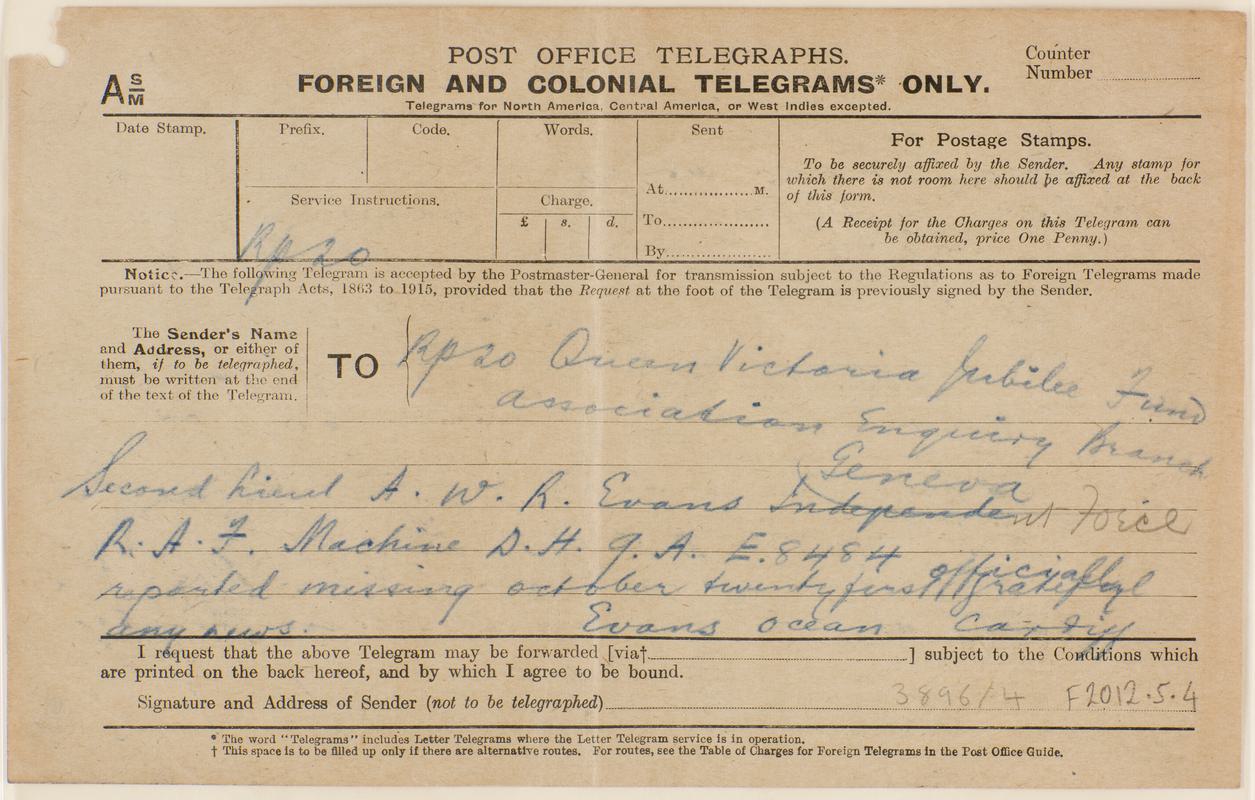 POST OFFICE TELEGRAPHS.
Counter
Number
A S/M
FOREIGN AND COLONIAL TELEGRAMS* ONLY.
Telegrams for North America, Central America, or West Indies excepted.
Date Stamp.
Prefix.
Code.
Words.
Sent
For Postage Stamps.
To be securely affixed by the Sender. Any stamp for
which there is not room here should be affixed at the back
of this form.
(A Receipt for the Charges on this Telegram can
be obtained, price One Penny.)
At..................M.
To....................
By....................
Service Instructions.
Charge.
£ s. d.
Rp 20
Notice.—The following Telegram is accepted by the Postmaster-General for transmission subject to the Regulations as to Foreign Telegrams made
pursuant to the Telegraph Acts, 1863 to 1915, provided that the Request at the foot of the Telegram is previously signed by the Sender.
The Sender's Name
and Address, or either of
them, if to be telegraphed,
must be written at the end
of the text of the Telegram.
TO
Rp 20 Queen Victoria Jubilee Fund
Association Enquiry Branch
Geneva
Second Lieut A. W. R. Evans Independent Force
R. A. F. Machine D. H. 9. A. E. 8484 officially
reported missing october twentyfirst grateful
any news. Evans ocean Cardiff
I request that the above Telegram may be forwarded [via†..............................] subject to the Conditions which
are printed on the back hereof, and by which I agree to be bound.
Signature and Address of Sender (not to be telegraphed) 3896/4 F2012.5.4
* The word "Telegrams" includes Letter Telegrams where the Letter Telegram service is in operation.
† This space is to be filled up only if there are alternative routes. For routes, see the Table of Charges for Foreign Telegrams in the Post Office Guide.